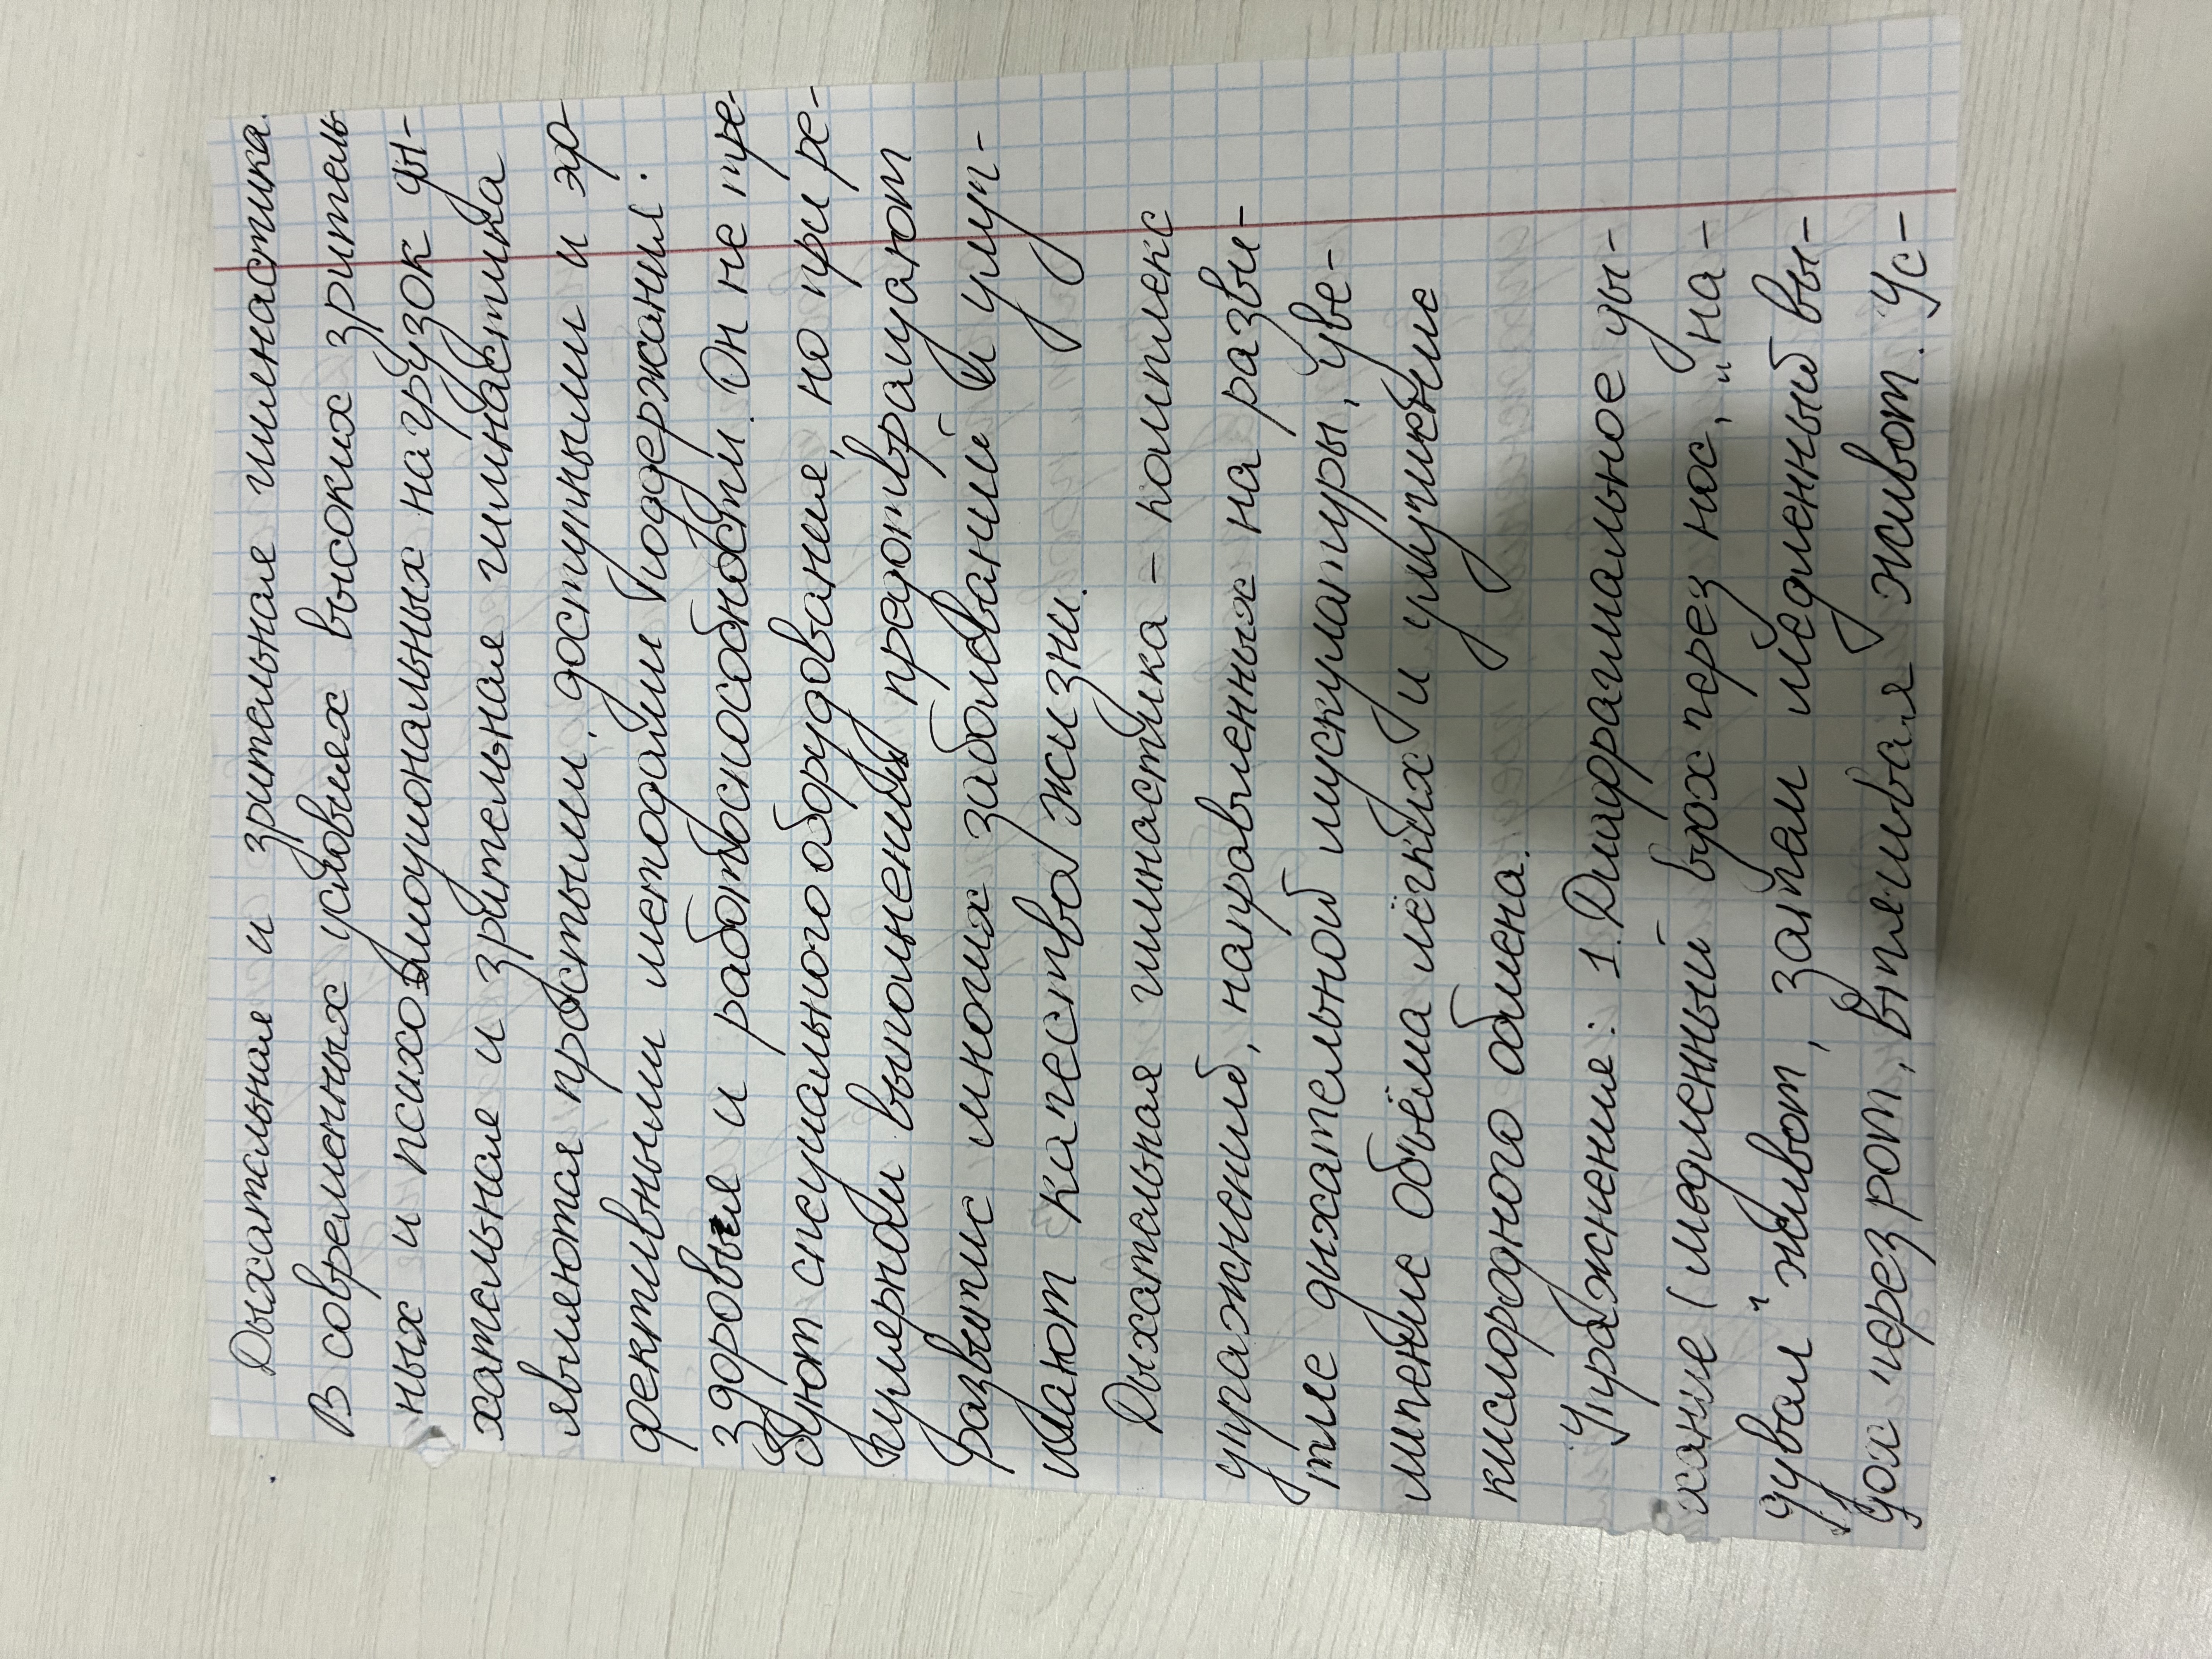 Дыхательная и зрительная гимнастика.
В современных условиях высоких зритель
ных и психоэмоциональных нагрузок ды-
хательная и зрительная гимнастика
являются простыми, доступными и эф
фективными методами поддержания.
здоровья и работоспособности. Он не тре-
буют специального оборудования, но при ре-
гулярном выполнении предотвращают
развитие многих заболеваний и улуч-
шают качество жизни.
Дыхательная гимнастика - комплекс
упражнений, направленных на разви-
тие дыхательной мускулатуры, уве-
личение объёма лёгких и улучшение
кислородного обмена.
Упражнения: 1. Диафрагмальное ды-
хание (медленный вдох через нос, "на-
дувая" живот, затем медленный вы-
дох через рот, втягивая живот. Ус-